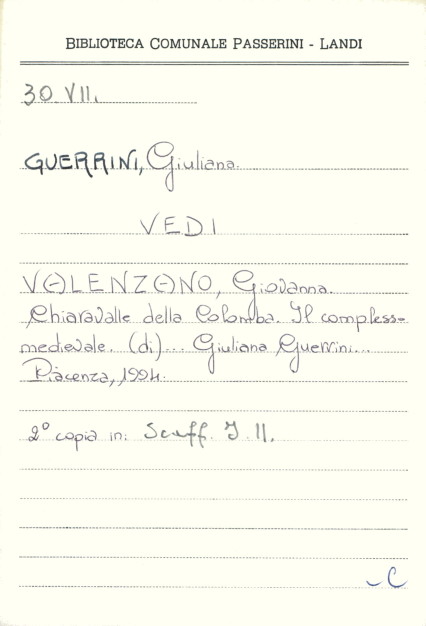 BIBLIOTECA COMUNALE PASSERINI - LANDI
30.VII.
GUERRINI, Giuliana.
VEDI
VALENZANO, Giovanna.
Chiaravalle della Colomba. Il compless=
medievale. (di)... Giuliana Guerrini...
Piacenza, 1994.
2° copia in: Scaff. I. 11.
C